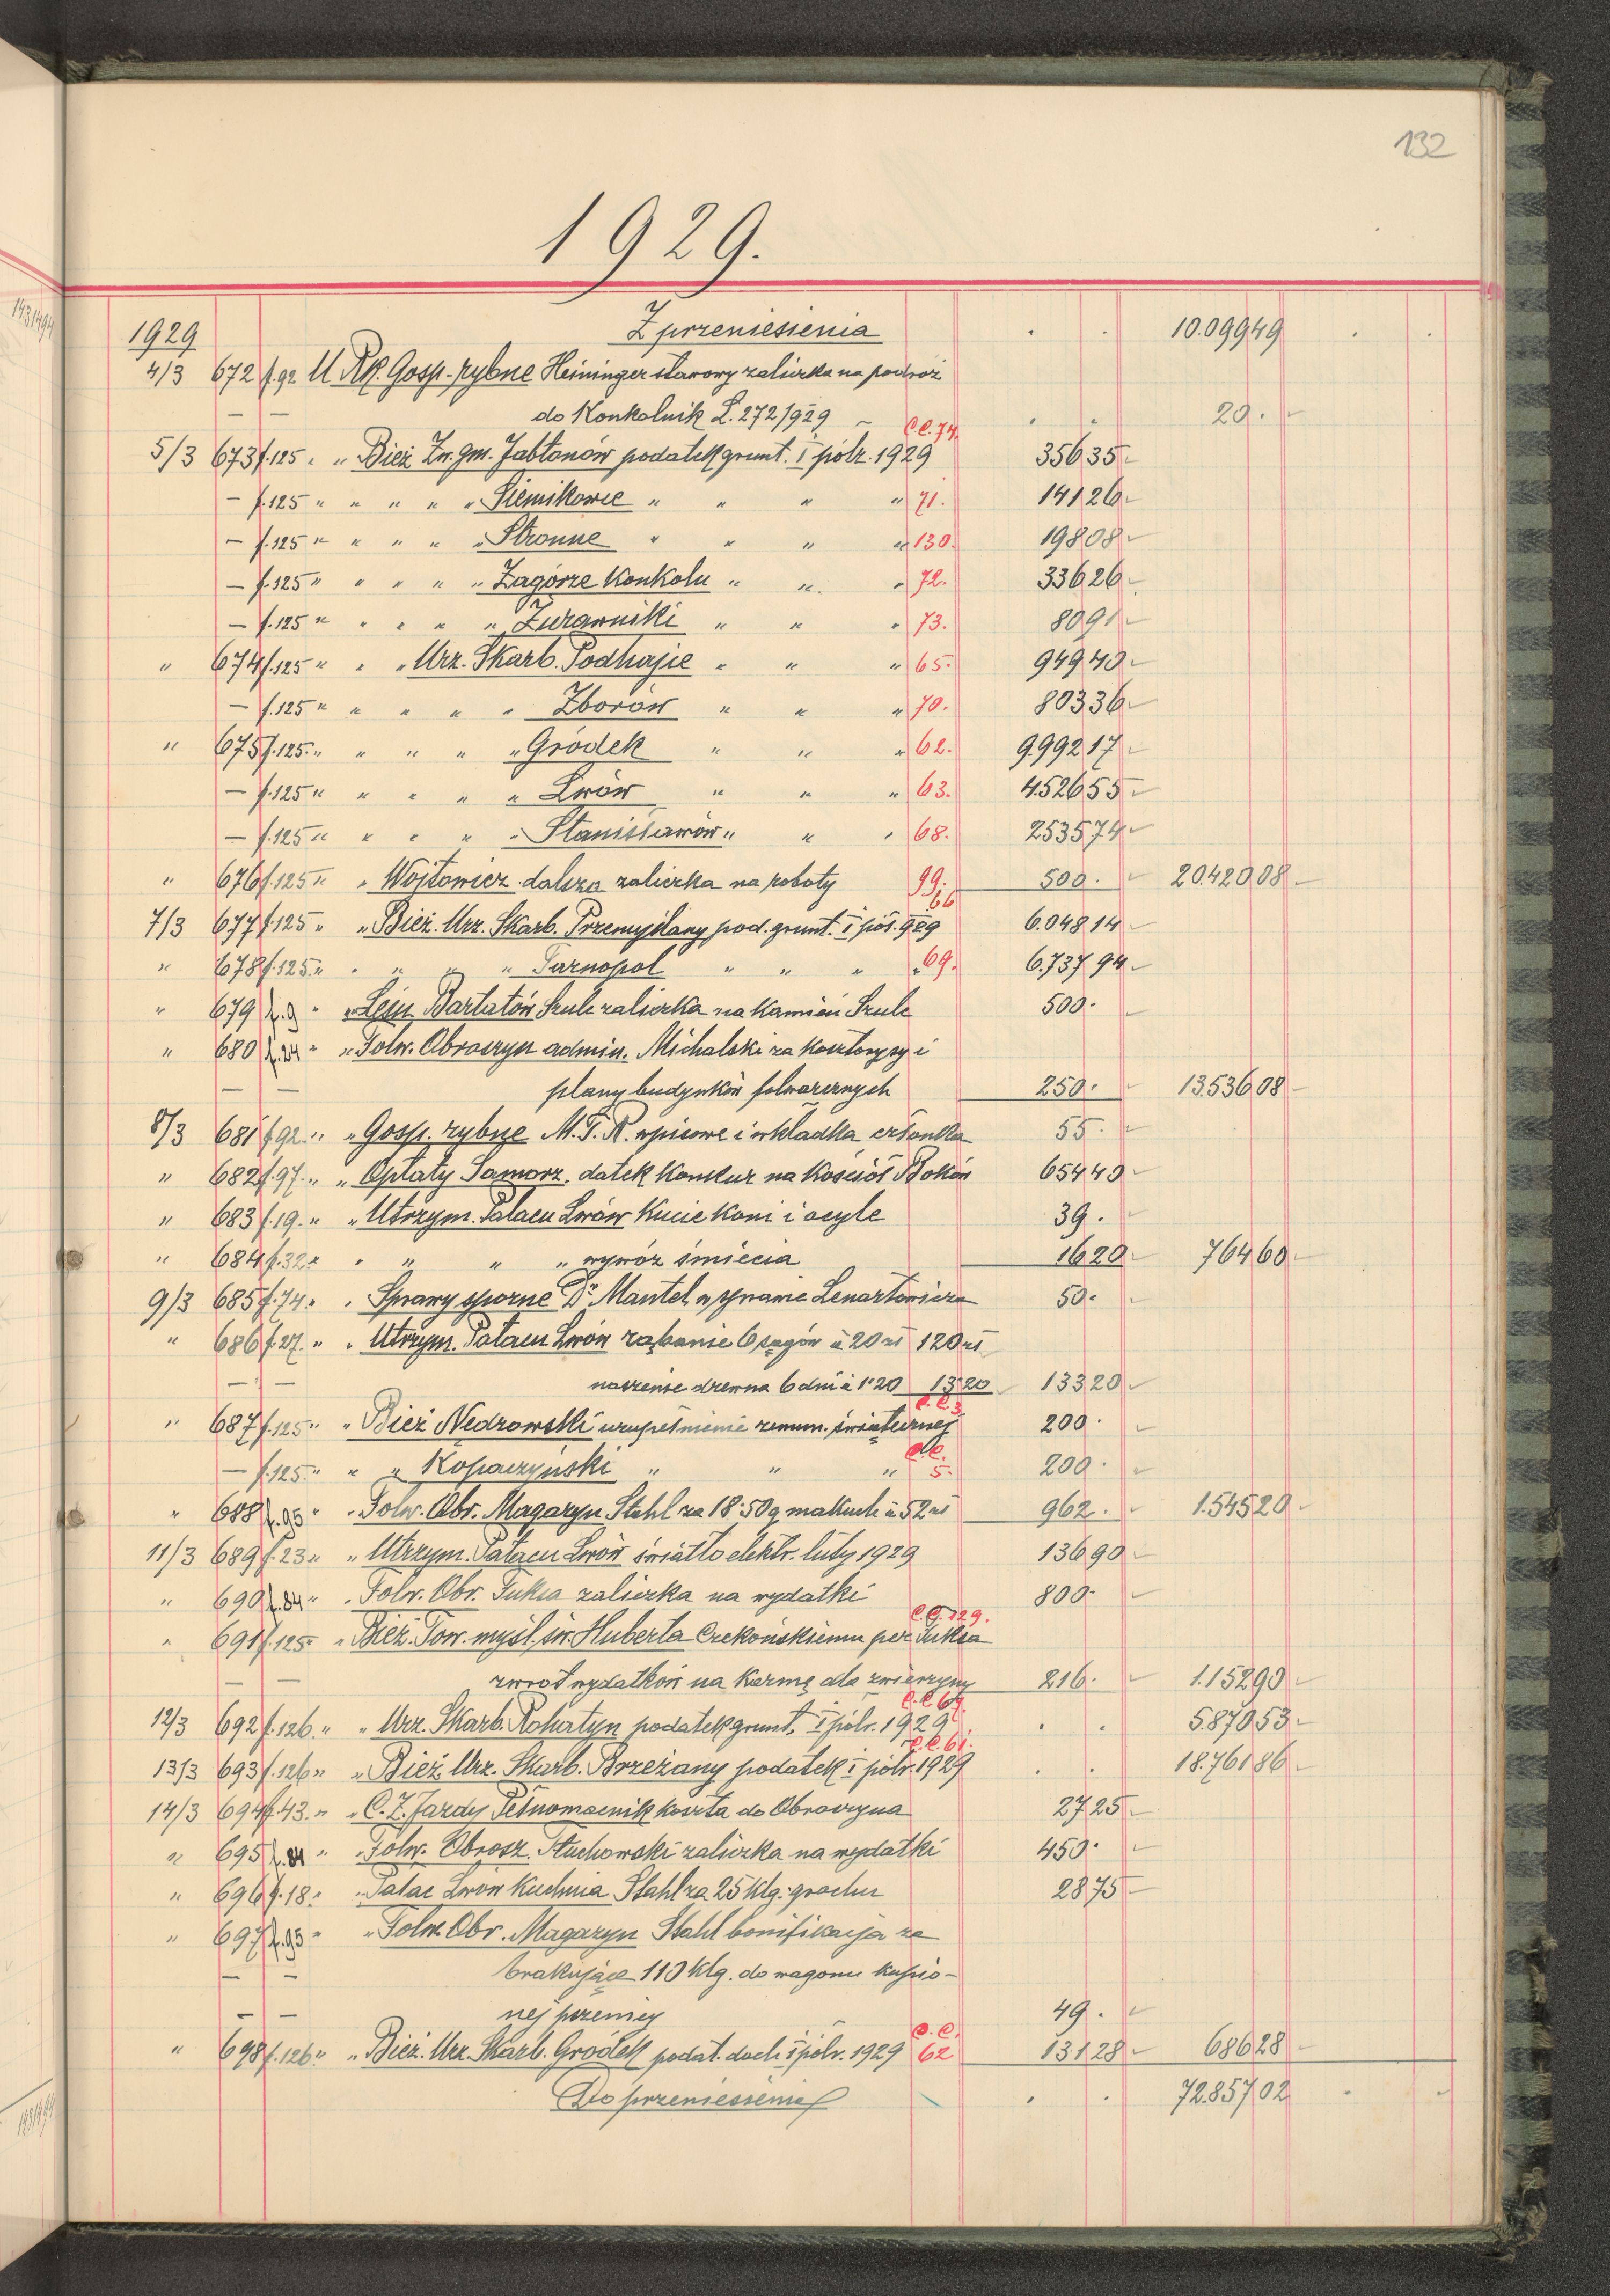 132
1929.
1929 Z przeniesienia . . 10.099 49 . .
4/3 672 f.92 U Rk. Gosp. rybne Heininger stawowy zaliczka na podróż
— — do Konkolnik L. 272/929 — . . 20. -
C.C. 74.
5/3 673 f.125 " " Bież Zw. gm. Jabłonów podatek grunt. I półr. 1929 356 35 -
— f.125 " " " " " Siemikowce " " " " 71. 141 26 -
— f.125 " " " " " Stronne " " " " 130. 198 08 -
— f.125 " " " " " Zagórze Konkolu " " " 72. 336 26 -
— f.125 " " " " " Żurawniki " " " 73. 80 91 -
" 674 f.125 " " " Urz. Skarb. Podhajce " " " 65. 949 40 -
— f.125 " " " " " Zborów " " " 70. 803 36 -
" 675 f.125 " " " " " Gródek " " " 62. 9.992 17 -
— f.125 " " " " " Lwów " " " 63. 4.526 55 -
— f.125 " " " " " Stanisławów " " " 68. 2535 74 -
" 676 f.125 " " Wojtowicz dalsza zaliczka na roboty 99. 500. - 20.420 08 -
66
7/3 677 f.125 " " Bież. Urz. Skarb. Przemyślany pod. grunt. I pół. 929 6.048 14 -
" 678 f.125 " " " " " Tarnopol " " " " 69. 6.737 94 -
" 679 f.9 " " Leśn. Bartatów Szulc zaliczka na kamień Szulc 500. -
" 680 f.24 " " Folw. Obroszyn admin. Michalski za kosztorysy i
— — plany budynków folwarcznych 250. - 13.536 08 -
8/3 681 f.92 " " Gosp. rybne M.T.R. wpisowe i wkładka członka 55. -
" 682 f.97 " " Opłaty Samorz. datek konkur na kościół Bołków 654 40 -
" 683 f.19 " " Utrzym. Pałacu Lwów kucie koni i ocyle 39. -
" 684 f.32 " " " " " wywóz śmiecia 16 20 - 764 60 -
9/3 685 f.74 " " Sprawy sporne Dr Mantel w sprawie Lenartowicza 50. -
" 686 f.27 " " Utrzym. Pałacu Lwów rąbanie 6 sągów à 20 zł 120 zł
— — noszenie drzewa 6 dni à 1.20 13.20 133 20 -
C.C. 3
" 687 f.125 " " Bież Nedrowski uzupełnienie remun. świątecznej 200. -
C.C.
— f.125 " " " Kopaczyński " " " 5. 200. -
" 688 f.95 " " Folw. Obr. Magazyn Stahl za 18.50 q makuch à 52 zł 962. - 1.545 20 -
11/3 689 f.23 " " Utrzym. Pałacu Lwów światło elektr. luty 1929 136 90 -
" 690 f.84 " " Folw. Obr. Fuksa zaliczka na wydatki 800. -
C.C. 129.
" 691 f.125 " Bież. Tow. myśl. św. Huberta Czekońskiemu per Fuksa
— — zwrot wydatków na karmę dla zwierzyny 216. - 1.152 90 -
C.C. 67.
12/3 692 f.126 " " Urz. Skarb. Rohatyn podatek grunt. I półr. 1929 . . 5.870 53 -
C.C. 61.
13/3 693 f.126 " " Bież Urz. Skarb. Brzeżany podatek I półr. 1929 . . 18.761 86 -
14/3 694 f.43 " " C.Z. Jazdy Pełnomocnik koszta do Obroszyna 27 25 -
" 695 f.84 " " Folw. Obrosz. Słuchowski zaliczka na wydatki 450. -
" 696 f.18 " " Pałac Lwów Kuchnia Stahl za 25 klg. grochu 28 75 -
" 697 f.93 " " Folw. Obr. Magazyn Stahl bonifikacja za
— — brakujące 110 klg. do wagonu kupio-
— — nej pszenicy 49. -
C.C.
" 698 f.126 " " Bież. Urz. Skarb. Gródek podat. doch I półr. 1929 62 131 28 - 686 28 -
Do przeniesienia . . 72.857 02 . -